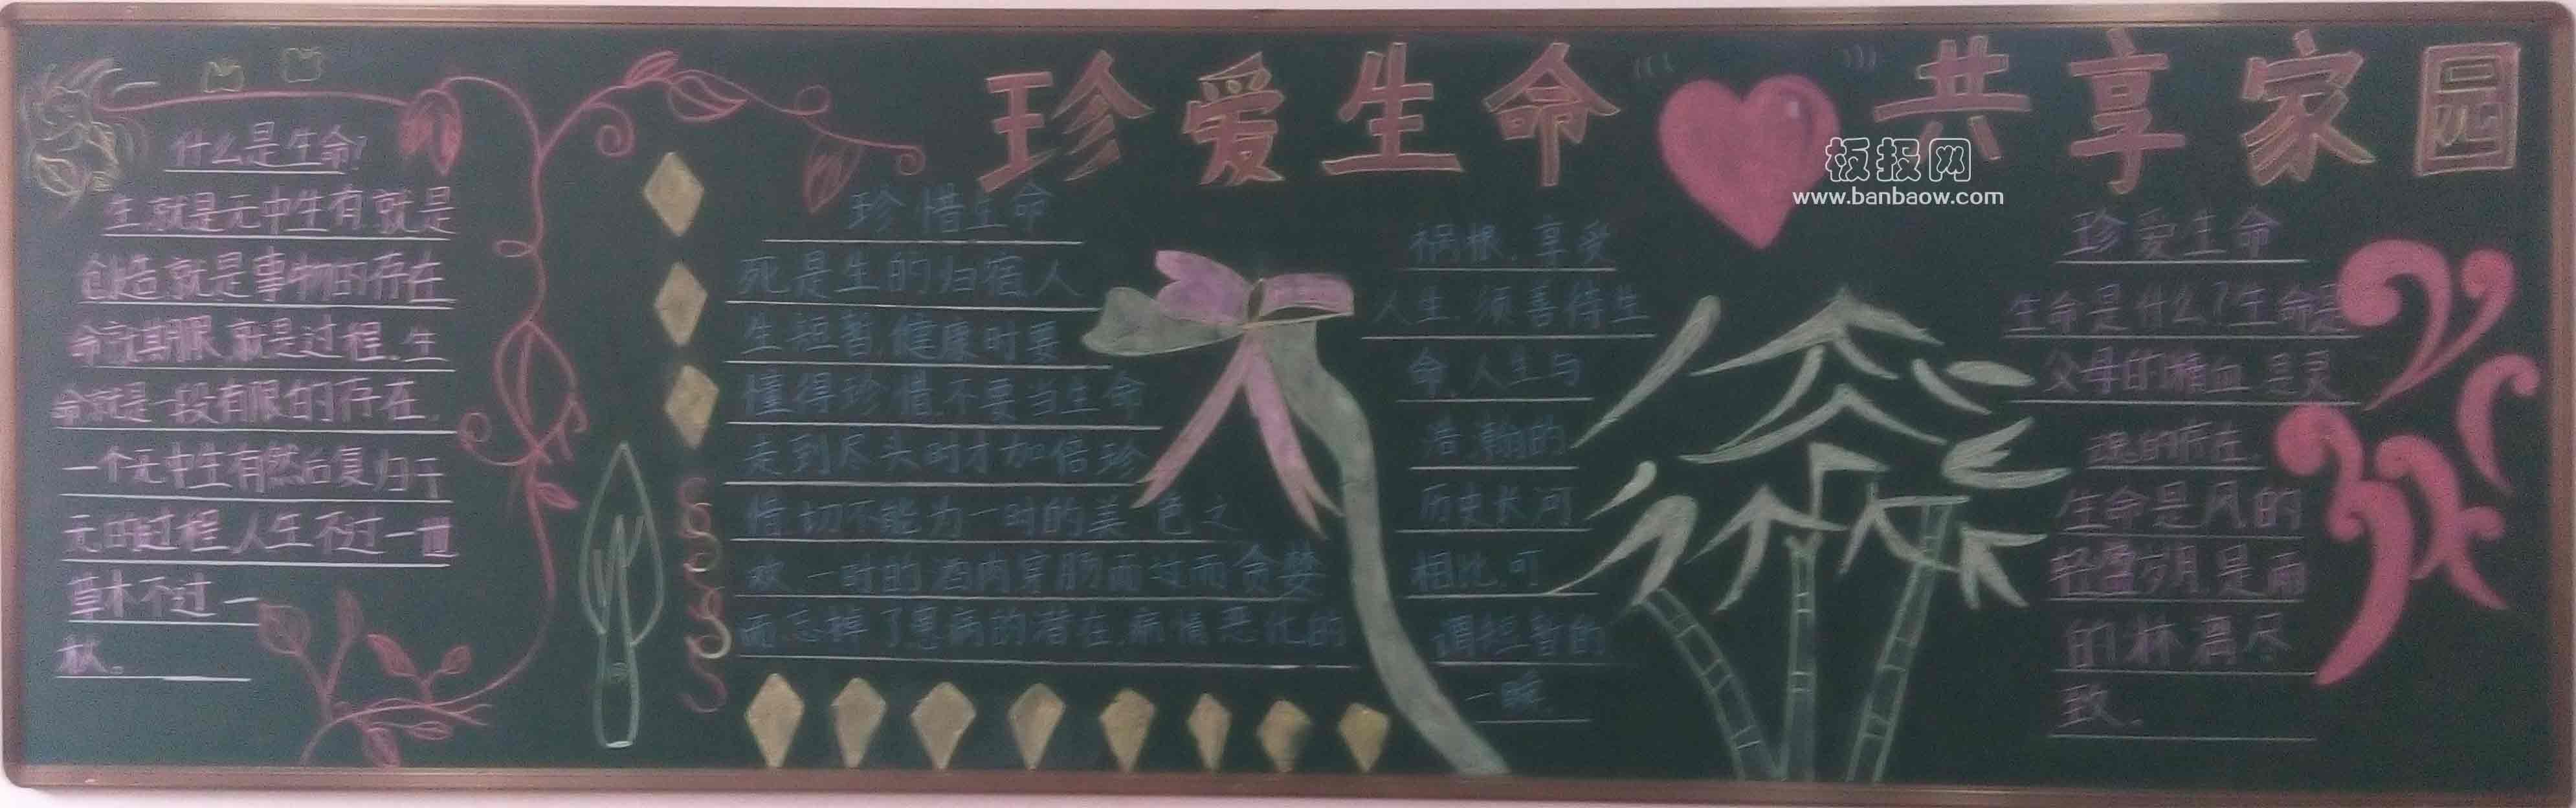 珍爱生命 共享家园
板报网
www.banbaow.com
什么是生命?
生,就是无中生有,就是
创造,就是事物的存在
命就是期限,就是过程.生
命就是一段有限的存在.
一个无中生有然后复归于
无的过程,人生不过一世
草木不过一
秋。
珍惜生命
死是生的归宿,人
生短暂,健康时要
懂得珍惜,不要当生命
走到尽头时才加倍珍
惜,切不能为一时的美色之
欢,一时的酒肉穿肠而过而贪婪
而忘掉了患病的潜在,病情恶化的
祸根.享受
人生,须善待生
命,人生与
浩瀚的
历史长河
相比,可
谓短暂的
一瞬.
珍爱生命
生命是什么?生命是
父母的精血,是灵
魂的存在.
生命是风的
轻盈岁月,是雨
的林漓尽
致.